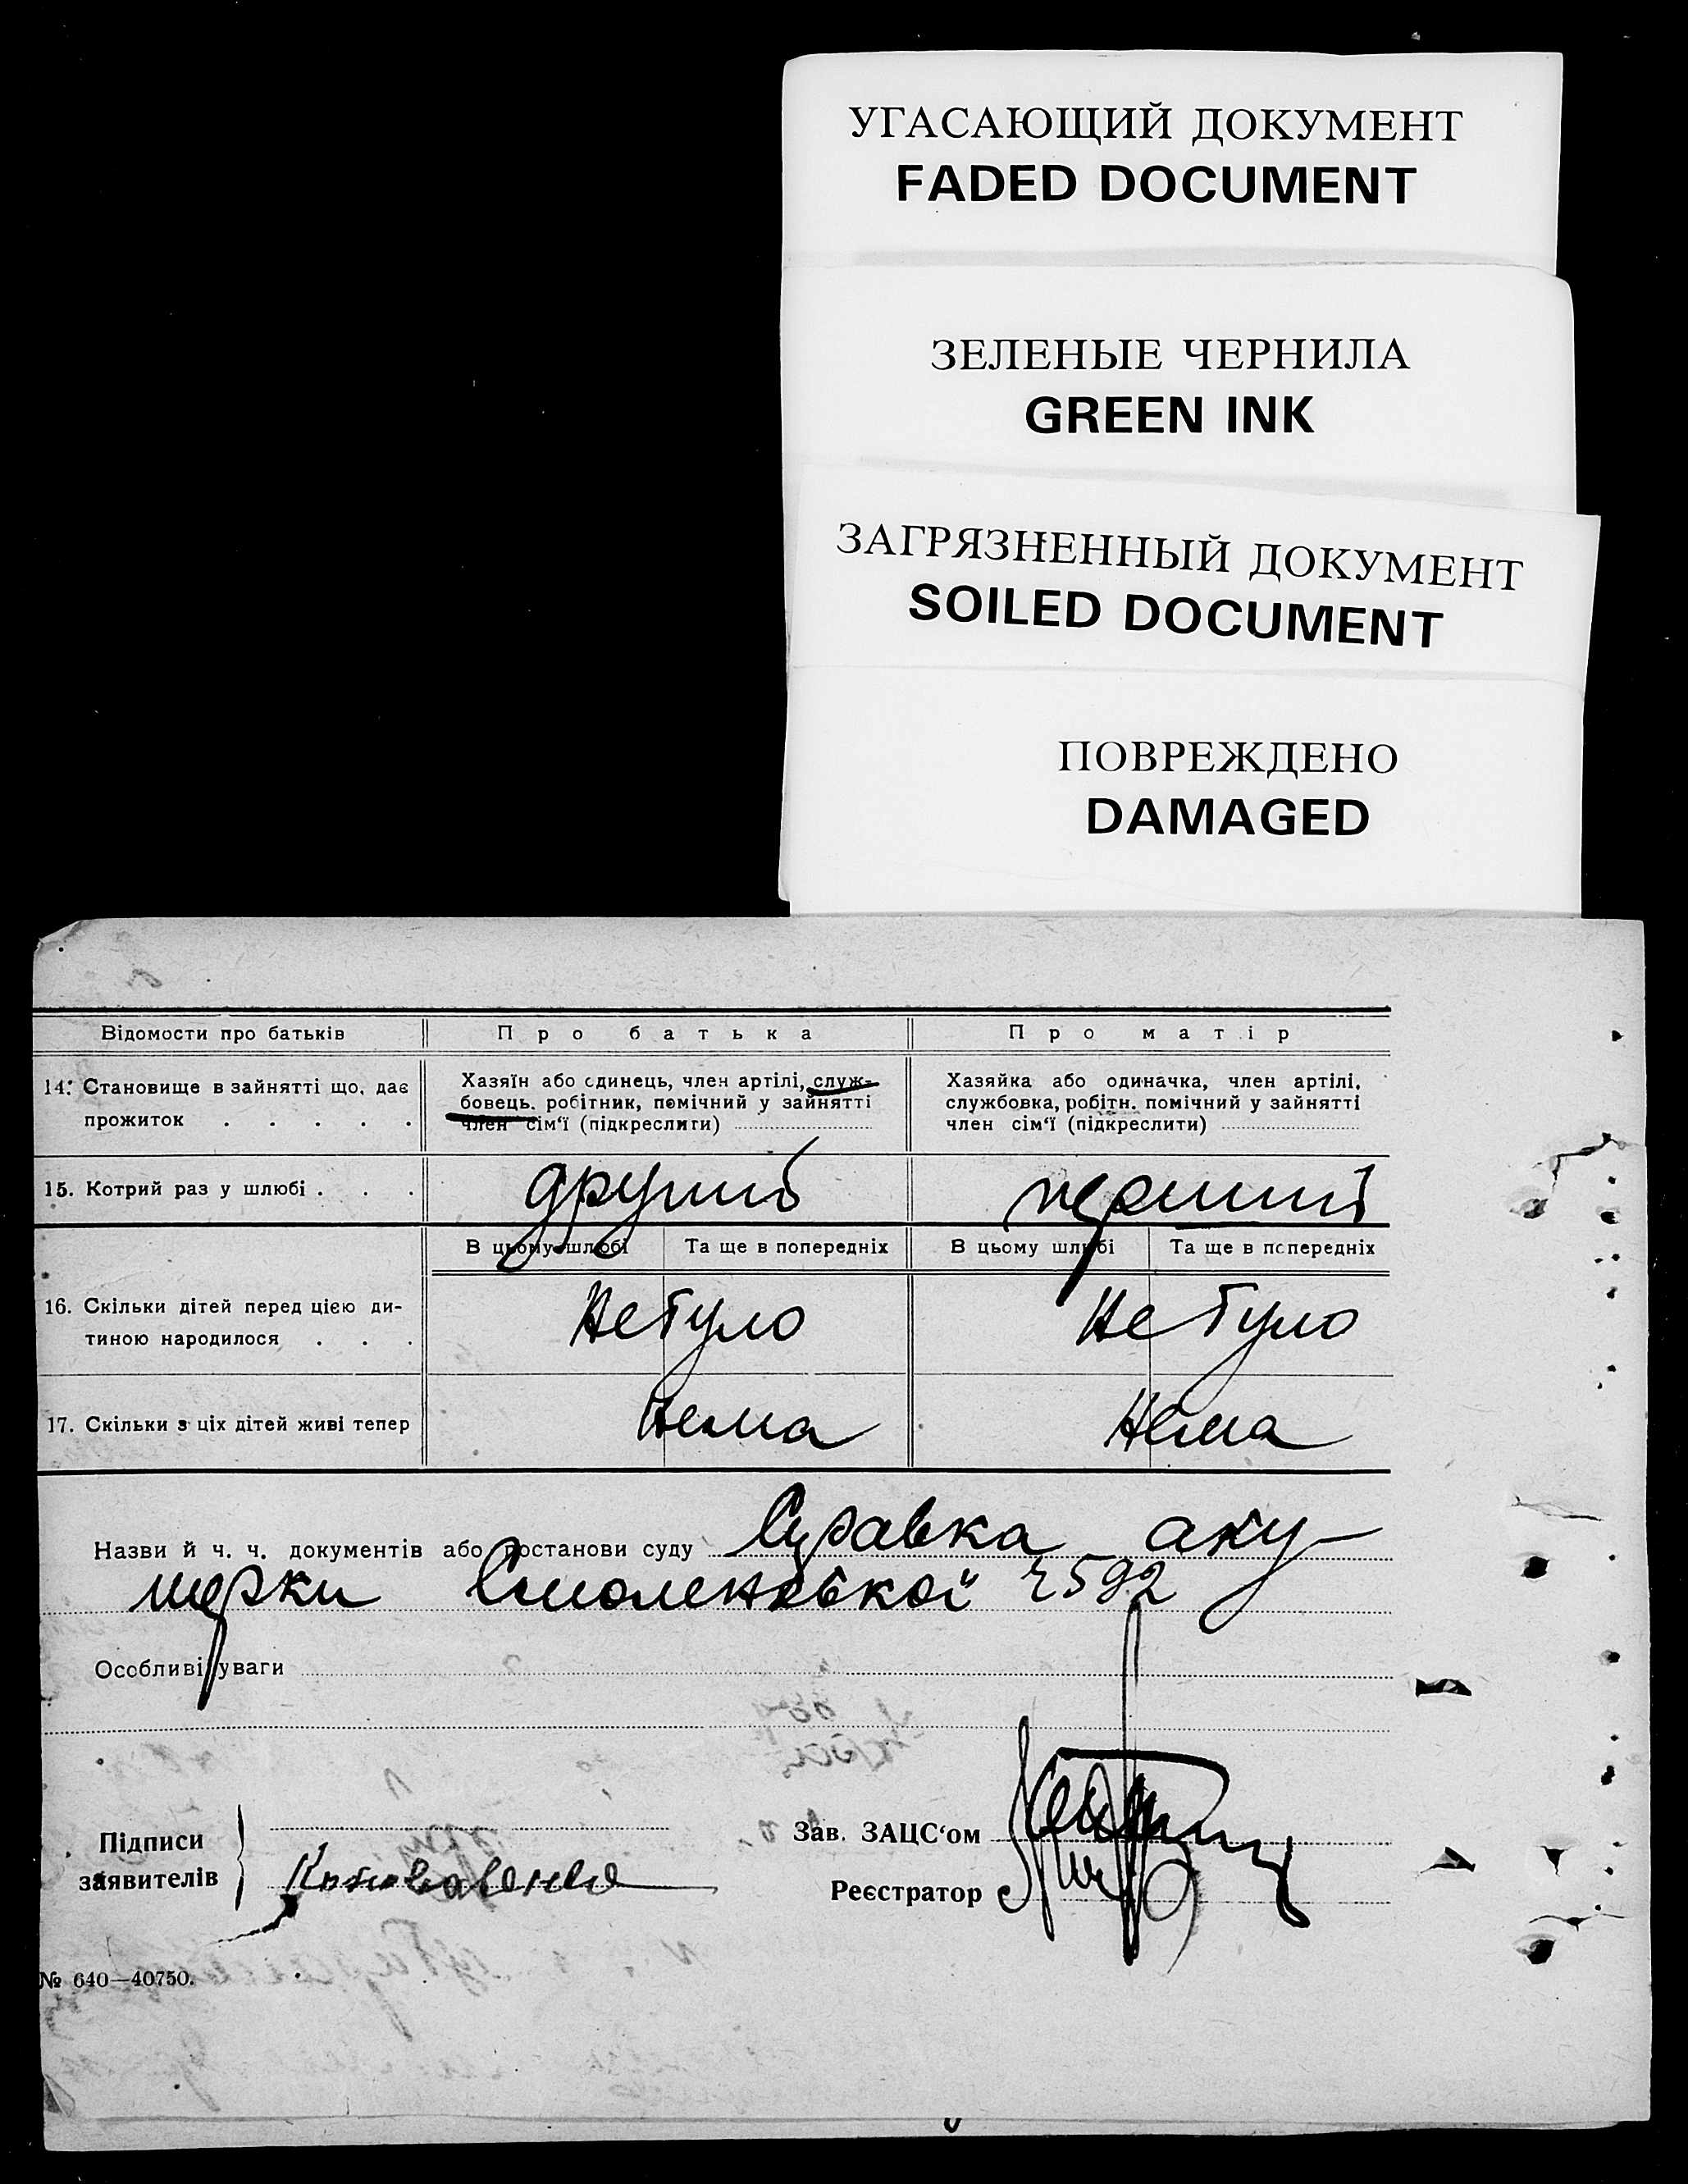 УГАСАЮЩИЙ ДОКУМЕНТ
FADED DOCUMENT
ЗЕЛЕНЫЕ ЧЕРНИЛА
GREEN INK
ЗАГРЯЗНЕННЫЙ ДОКУМЕНТ
SOILED DOCUMENT
ПОВРЕЖДЕНО
DAMAGED
Відомости про батьків
Про батька
Про матір
14. Становище в зайнятті що, дає
прожиток . . . . .
Хазяїн або єдинець, член артілі, служ-
бовець, робітник, помічний у зайнятті
член сім'ї (підкреслити)
Хазяйка або одиначка, член артілі,
службовка, робітн. помічний у зайнятті
член сім'ї (підкреслити)
15. Котрий раз у шлюбі . . .
другий
перший
В цьому шлюбі
Та ще в попередніх
В цьому шлюбі
Та ще в попередніх
16. Скільки дітей перед цією ди-
тиною народилося . . .
Не було
Не було
17. Скільки з ціх дітей живі тепер
Нема
Нема
Назви й ч. ч. документів або постанови суду Справка аку-
шерки Смоленської ч 592
Особливі уваги
Підписи
заявителів
Зав. ЗАЦС'ом
Реєстратор
№ 640—40750.